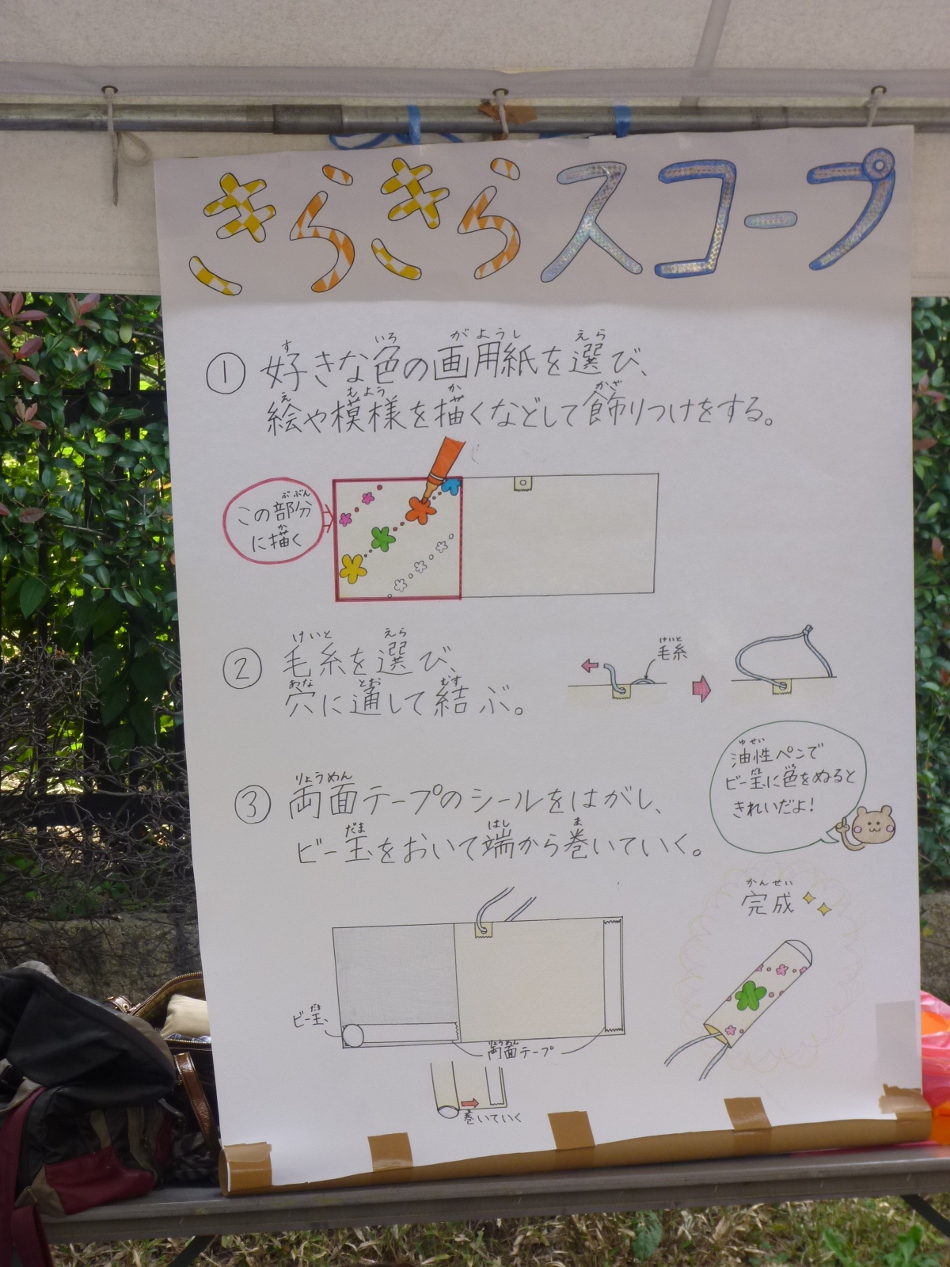 きらきらスコープ
① 好きな色の画用紙を選び、
絵や模様を描くなどして飾りつけをする。
この部分
に描く
② 毛糸を選び、
穴に通して結ぶ。
毛糸
③ 両面テープのシールをはがし、
ビー玉をおいて端から巻いていく。
油性ペンで
ビー玉に色をぬると
きれいだよ!
完成
ビー玉
両面テープ
巻いていく